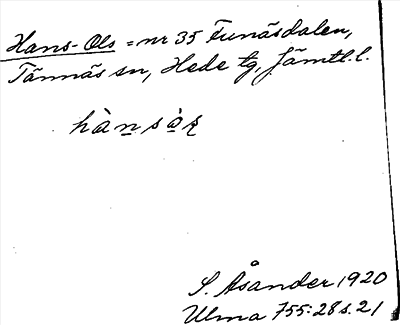 Hans-Ols = nr 35 Funäsdalen,
Tännäs sn, Hede tg, Jämtl. l.
hànsòʂ
S. Åsander 1920
Ulma 755:28 s. 21